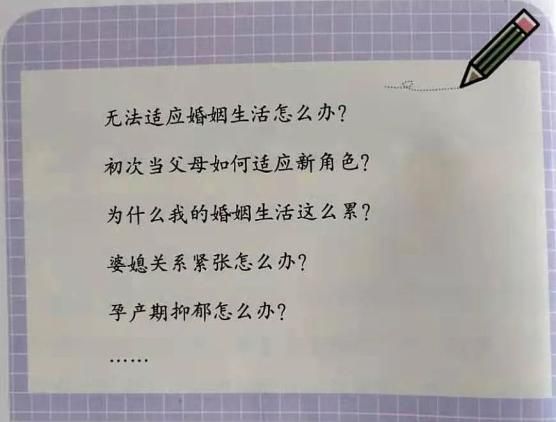 无法适应婚姻生活怎么办?
初次当父母如何适应新角色?
为什么我的婚姻生活这么累?
婆媳关系紧张怎么办?
孕产期抑郁怎么办?
……